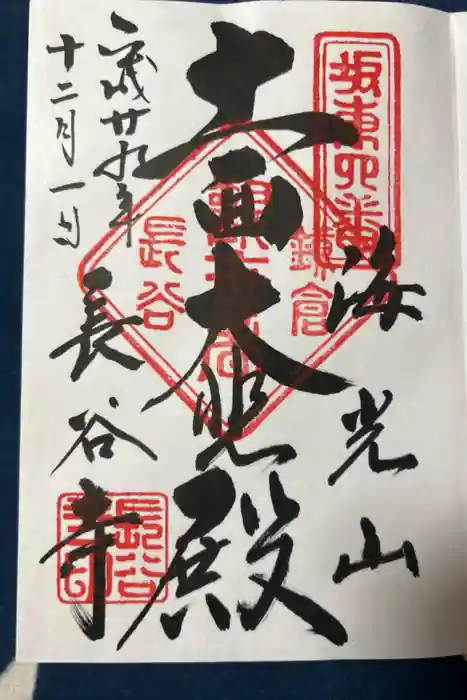 坂東四番
海光山
十一面大悲殿
鎌倉
長谷
平成廿九年
十二月一日
長谷寺
長谷
寺印